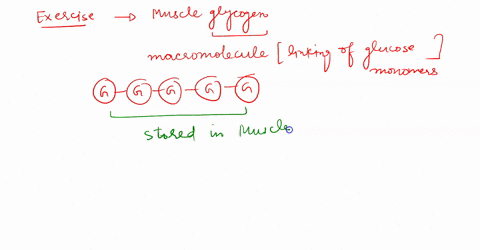 Exercise → Muscle glycogen
macromolecule [linking of glucose monomers]
G-G-G-G-G
stored in Muscle